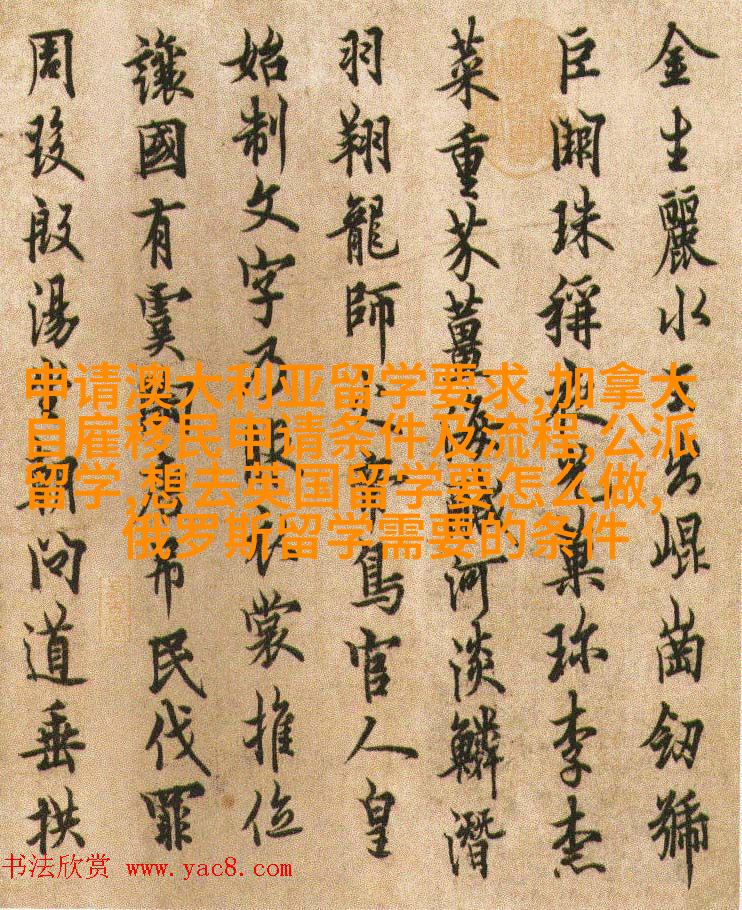 金生麗水玉出崐崗劒號
巨闕珠稱夜光菓珎李柰
菜重芥薑海醎河淡鱗潛
羽翔龍師火帝鳥官人皇
始制文字乃服衣裳推位
讓國有虞陶唐弔民伐罪
周發殷湯坐朝問道垂拱
申请澳大利亚留学要求,加拿大
自雇移民申请条件及流程,公派
留学,想去英国留学要怎么做,
俄罗斯留学需要的条件
书法欣赏 www.yac8.com